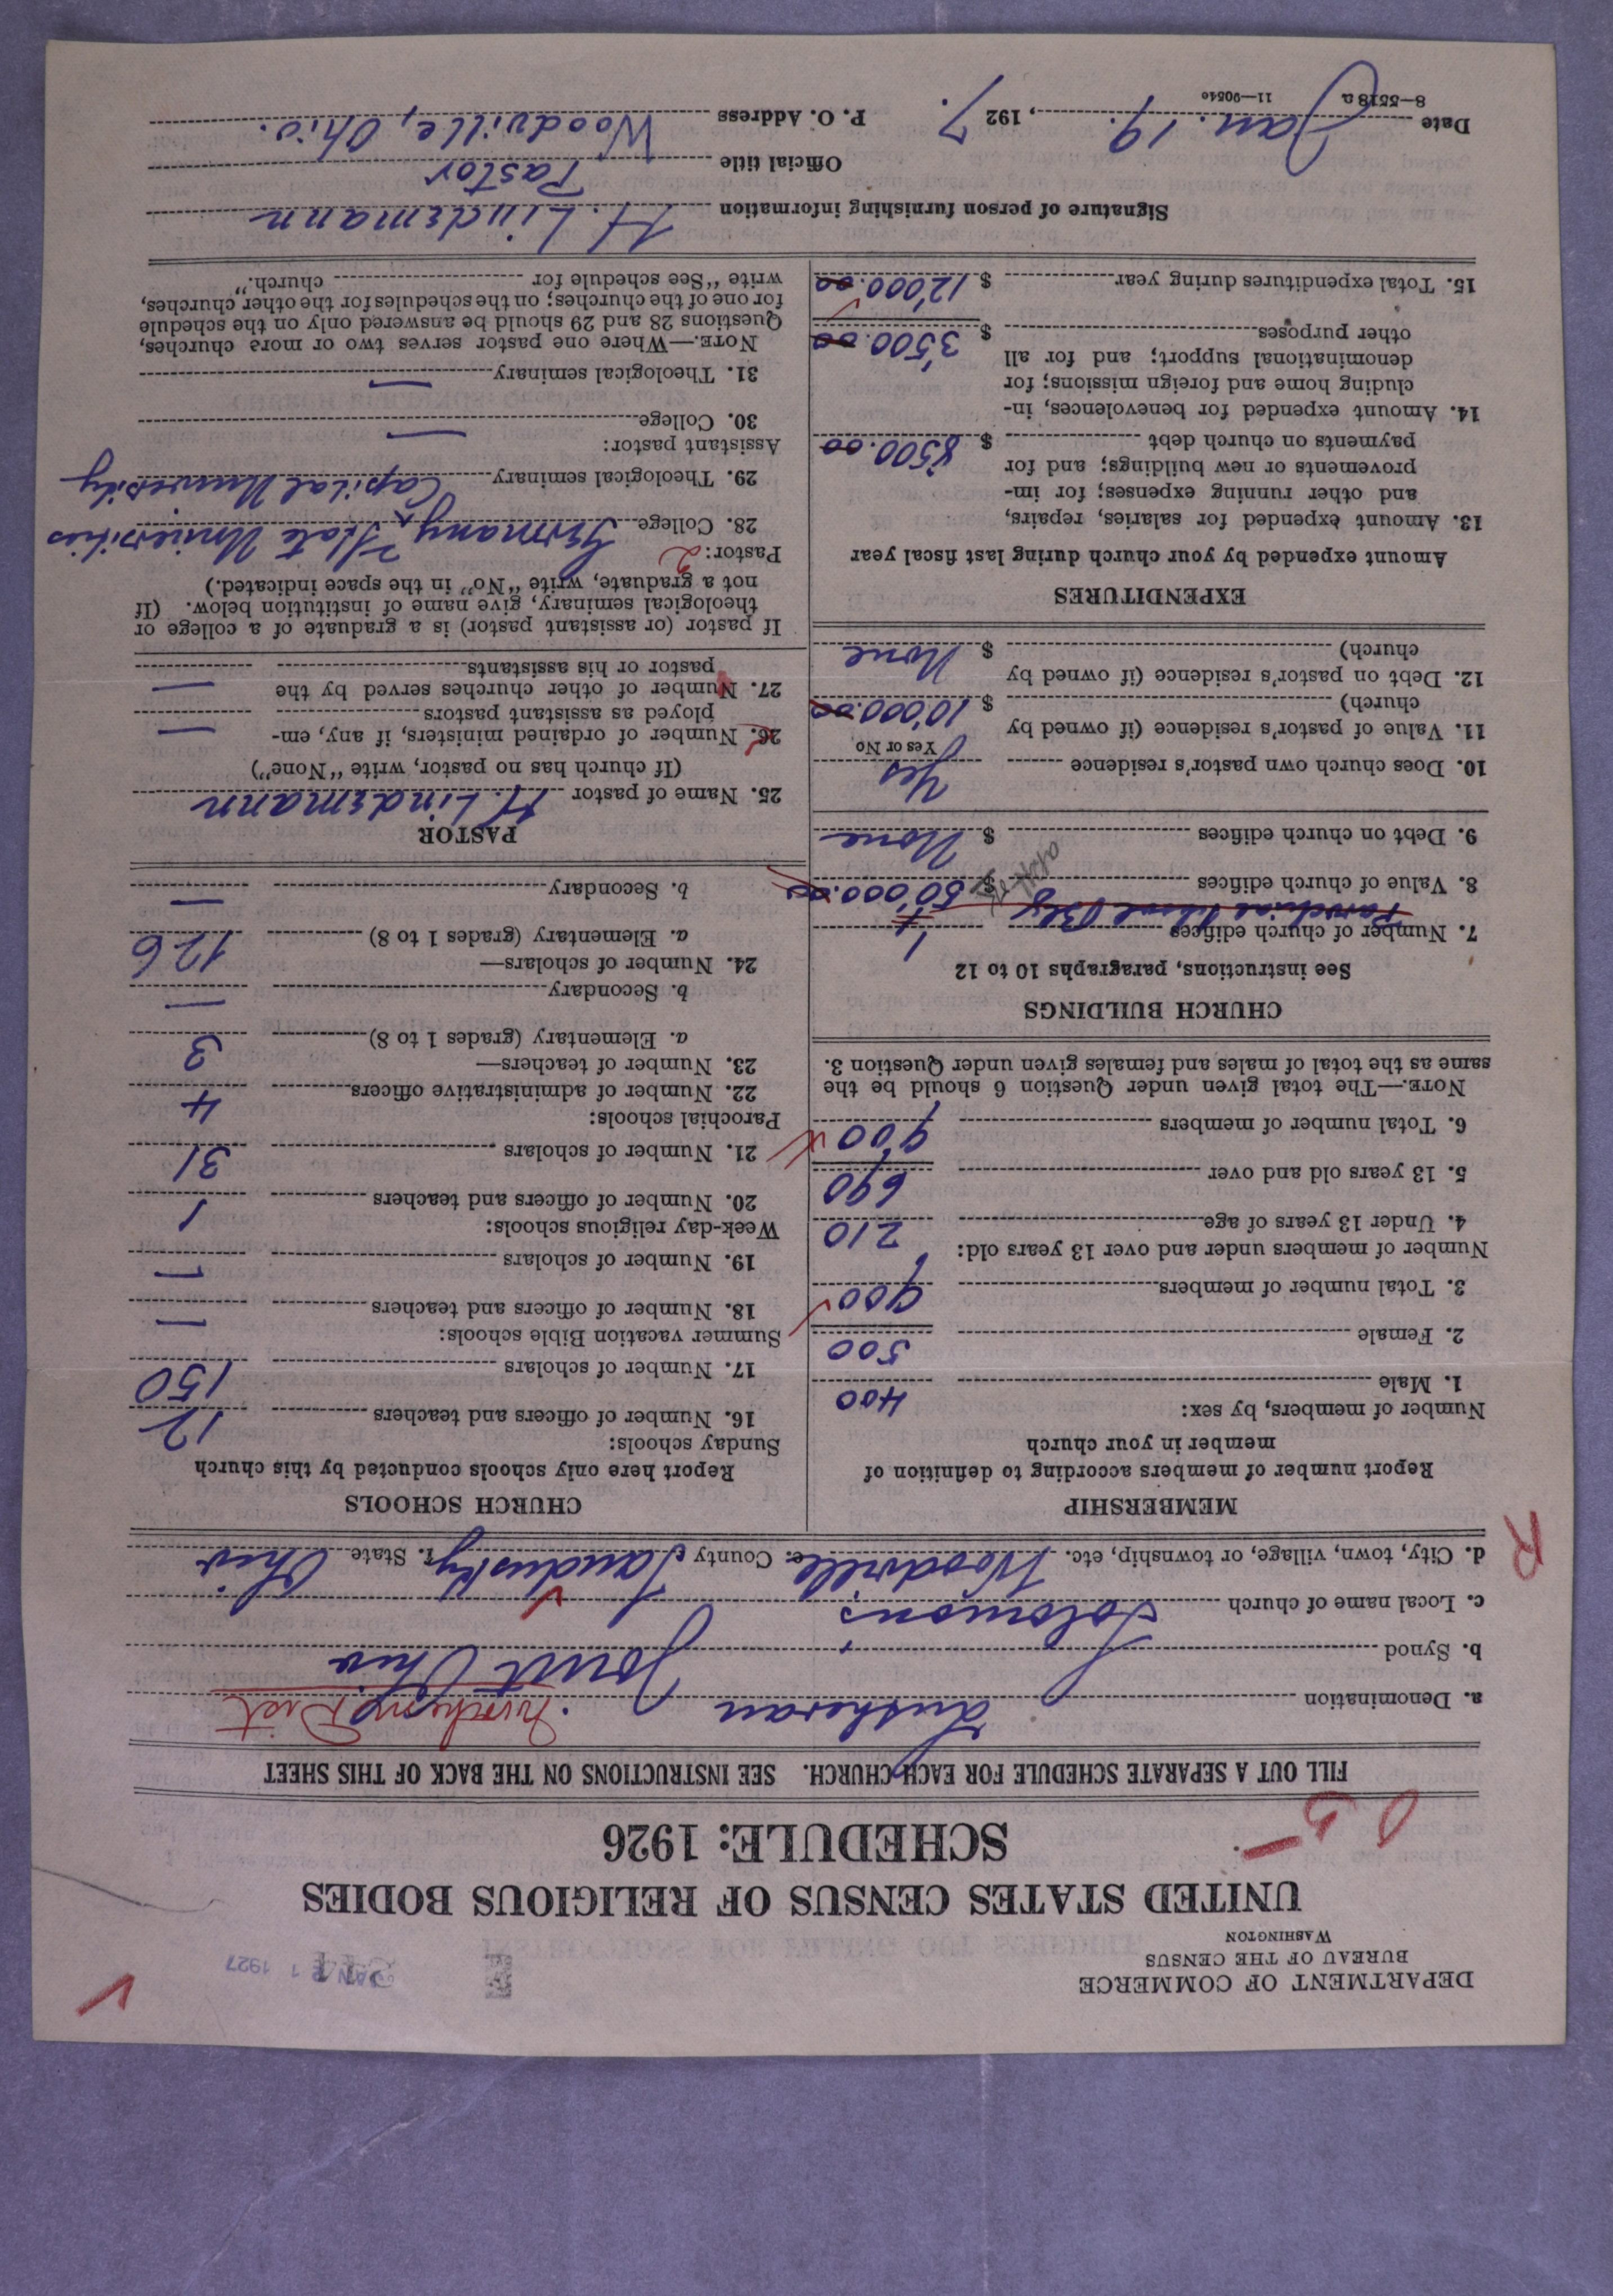 DEPARTMENT OF COMMERCE
BUREAU OF THE CENSUS
WASHINGTON
JAN 21 1927
UNITED STATES CENSUS OF RELIGIOUS BODIES
SCHEDULE: 1926
FILL OUT A SEPARATE SCHEDULE FOR EACH CHURCH. SEE INSTRUCTIONS ON THE BACK OF THIS SHEET
a. Denomination Lutheran
b. Synod Joint Ohio
c. Local name of church Solomon's
d. City, town, village, or township, etc. Woodville e. County Sandusky f. State Ohio
R
MEMBERSHIP
Report number of members according to definition of
member in your church
Number of members, by sex:
1. Male 400
2. Female 500
3. Total number of members 900
Number of members under and over 13 years old:
4. Under 13 years of age 210
5. 13 years old and over 690
6. Total number of members 900
NOTE.—The total given under Question 6 should be the
same as the total of males and females given under Question 3.
CHURCH BUILDINGS
See instructions, paragraphs 10 to 12
7. Number of church edifices 1
Parochial School Bldg
8. Value of church edifices $ 50'000.00
9. Debt on church edifices $ None
10. Does church own pastor's residence Yes
Yes or No
11. Value of pastor's residence (if owned by
church) $ 10'000.00
12. Debt on pastor's residence (if owned by
church) $ None
EXPENDITURES
Amount expended by your church during last fiscal year
13. Amount expended for salaries, repairs,
and other running expenses; for im-
provements or new buildings; and for
payments on church debt $ 8'500.00
14. Amount expended for benevolences, in-
cluding home and foreign missions; for
denominational support; and for all
other purposes $ 3'500.00
15. Total expenditures during year $ 12'000.00
CHURCH SCHOOLS
Report here only schools conducted by this church
Sunday schools:
16. Number of officers and teachers 12
17. Number of scholars 150
Summer vacation Bible schools:
18. Number of officers and teachers —
19. Number of scholars —
Week-day religious schools:
20. Number of officers and teachers 1
21. Number of scholars 31
Parochial schools:
22. Number of administrative officers 4
23. Number of teachers—
a. Elementary (grades 1 to 8) 3
b. Secondary —
24. Number of scholars—
a. Elementary (grades 1 to 8) 126
b. Secondary —
PASTOR
25. Name of pastor H. Lindemann
(If church has no pastor, write "None")
26. Number of ordained ministers, if any, em-
ployed as assistant pastors —
27. Number of other churches served by the
pastor or his assistants —
If pastor (or assistant pastor) is a graduate of a college or
theological seminary, give name of institution below. (If
not a graduate, write "No" in the space indicated.)
Pastor: 2
28. College Germany State Universities
29. Theological seminary Capital University
Assistant pastor:
30. College —
31. Theological seminary —
NOTE.—Where one pastor serves two or more churches,
Questions 28 and 29 should be answered only on the schedule
for one of the churches; on the schedules for the other churches,
write "See schedule for church."
Signature of person furnishing information H. Lindemann
Official title Pastor
Date Jan. 19., 1927. P. O. Address Woodville, Ohio.
8—5518a 11—9054c